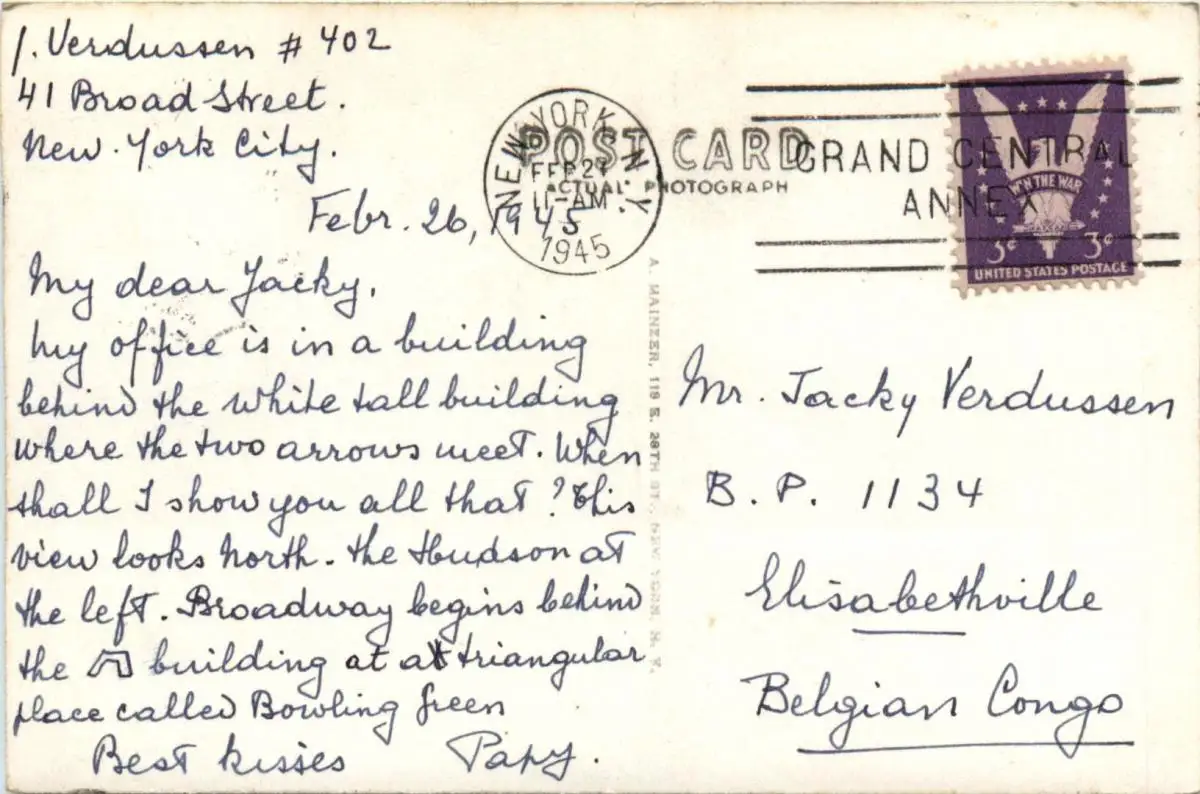 J. Verdussen # 402
41 Broad Street.
New-York City.
Febr. 26, 1945
My dear Jacky,
My office is in a building
behind the white tall building
where the two arrows meet. When
shall I show you all that? This
view looks North. The Hudson at
the left. Broadway begins behind
the building at a triangular
place called Bowling Green
Best kisses Papy.
POST CARD
ACTUAL PHOTOGRAPH
NEW YORK, N.Y.
FEB 27
11-AM
1945
GRAND CENTRAL
ANNEX
WIN THE WAR
3¢ 3¢
UNITED STATES POSTAGE
A. MAINZER, 118 E. 28TH ST., NEW YORK, N. Y.
Mr. Jacky Verdussen
B. P. 1134
Elisabethville
Belgian Congo